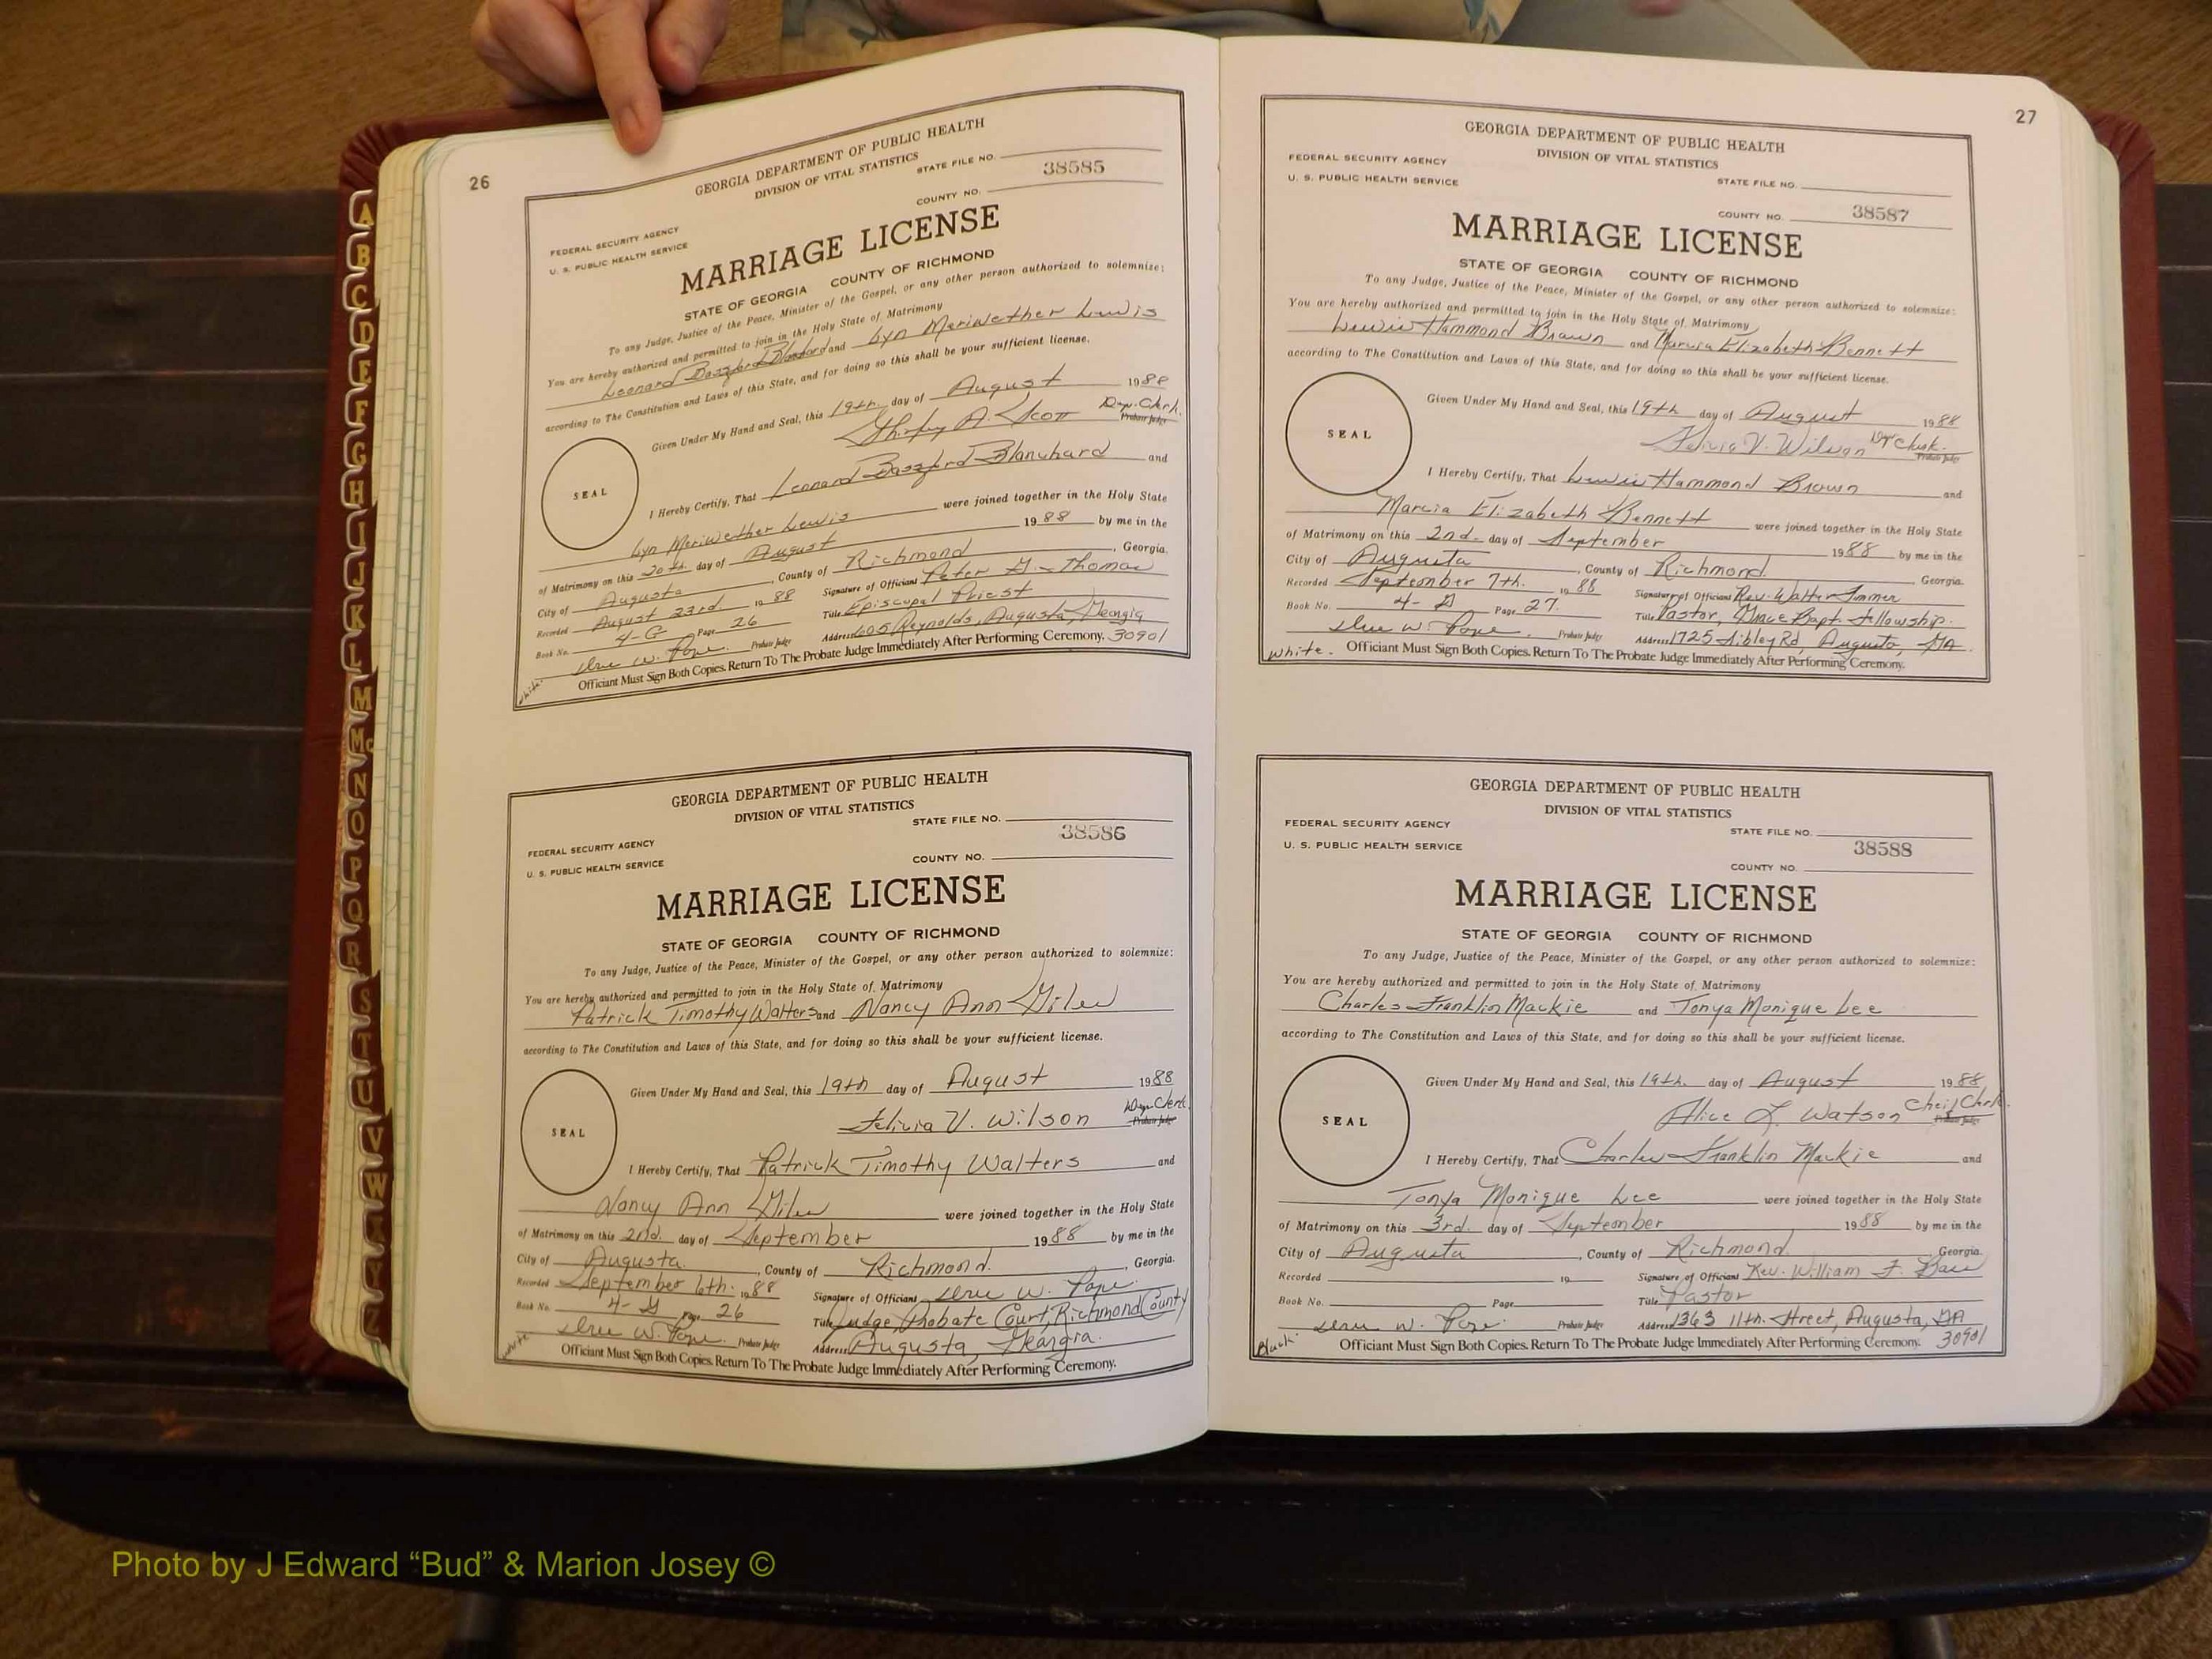 26
GEORGIA DEPARTMENT OF PUBLIC HEALTH
DIVISION OF VITAL STATISTICS
STATE FILE NO.
38585
COUNTY NO.
FEDERAL SECURITY AGENCY
U. S. PUBLIC HEALTH SERVICE
MARRIAGE LICENSE
STATE OF GEORGIA COUNTY OF RICHMOND
To any Judge, Justice of the Peace, Minister of the Gospel, or any other person authorized to solemnize:
You are hereby authorized and permitted to join in the Holy State of Matrimony
Leonard and Lyn Meriwether Lewis
according to The Constitution and Laws of this State, and for doing so this shall be your sufficient license.
Given Under My Hand and Seal, this 19th. day of August 1988
Shirley A. Scott Dep. Clerk.
Probate Judge
SEAL
I Hereby Certify, That Leonard Blanchard and
Lyn Meriwether Lewis were joined together in the Holy State
of Matrimony on this 20th. day of August 1988 by me in the
City of Augusta, County of Richmond, Georgia.
Recorded August 23rd. 1988 Signature of Officiant Peter G. Thomas
Book No. 4-G Page 26 Title Episcopal Priest
Probate Judge Address 605 Reynolds, Augusta, Georgia
Officiant Must Sign Both Copies. Return To The Probate Judge Immediately After Performing Ceremony. 30901
white.
GEORGIA DEPARTMENT OF PUBLIC HEALTH
DIVISION OF VITAL STATISTICS
STATE FILE NO.
38586
COUNTY NO.
FEDERAL SECURITY AGENCY
U. S. PUBLIC HEALTH SERVICE
MARRIAGE LICENSE
STATE OF GEORGIA COUNTY OF RICHMOND
To any Judge, Justice of the Peace, Minister of the Gospel, or any other person authorized to solemnize:
You are hereby authorized and permitted to join in the Holy State of Matrimony
Patrick Timothy Walters and Nancy Ann Giles
according to The Constitution and Laws of this State, and for doing so this shall be your sufficient license.
Given Under My Hand and Seal, this 19th day of August 1988
Felicia V. Wilson Dep. Clerk.
Probate Judge
SEAL
I Hereby Certify, That Patrick Timothy Walters and
Nancy Ann Giles were joined together in the Holy State
of Matrimony on this 2nd. day of September 1988 by me in the
City of Augusta, County of Richmond, Georgia.
Recorded September 6th. 1988 Signature of Officiant W. Pope
Book No. 4-G Page 26 Title Judge, Probate Court, Richmond County
W. Pope. Probate Judge Address Augusta, Georgia.
Officiant Must Sign Both Copies. Return To The Probate Judge Immediately After Performing Ceremony.
white
27
GEORGIA DEPARTMENT OF PUBLIC HEALTH
DIVISION OF VITAL STATISTICS
FEDERAL SECURITY AGENCY
U. S. PUBLIC HEALTH SERVICE
STATE FILE NO.
COUNTY NO. 38587
MARRIAGE LICENSE
STATE OF GEORGIA COUNTY OF RICHMOND
To any Judge, Justice of the Peace, Minister of the Gospel, or any other person authorized to solemnize:
You are hereby authorized and permitted to join in the Holy State of Matrimony
Lewis Hammond Brown and Marcia Elizabeth Bennett
according to The Constitution and Laws of this State, and for doing so this shall be your sufficient license.
Given Under My Hand and Seal, this 19th day of August 1988
Felicia V. Wilson Dep. Clerk.
Probate Judge
SEAL
I Hereby Certify, That Lewis Hammond Brown and
Marcia Elizabeth Bennett were joined together in the Holy State
of Matrimony on this 2nd. day of September 1988 by me in the
City of Augusta, County of Richmond, Georgia.
Recorded September 7th. 1988 Signature of Officiant Rev. Walter
Book No. 4-G Page 27. Title Pastor, Grace Bapt. Fellowship.
W. Pope. Probate Judge Address 1725 Sibley Rd, Augusta, GA.
white. Officiant Must Sign Both Copies. Return To The Probate Judge Immediately After Performing Ceremony.
GEORGIA DEPARTMENT OF PUBLIC HEALTH
DIVISION OF VITAL STATISTICS
FEDERAL SECURITY AGENCY
U. S. PUBLIC HEALTH SERVICE
STATE FILE NO.
38588
COUNTY NO.
MARRIAGE LICENSE
STATE OF GEORGIA COUNTY OF RICHMOND
To any Judge, Justice of the Peace, Minister of the Gospel, or any other person authorized to solemnize:
You are hereby authorized and permitted to join in the Holy State of Matrimony
Charles Franklin Mackie and Tonya Monique Lee
according to The Constitution and Laws of this State, and for doing so this shall be your sufficient license.
Given Under My Hand and Seal, this 19th. day of August 1988
Alice L. Watson Cheif Clerk.
Probate Judge
SEAL
I Hereby Certify, That Charles Franklin Mackie and
Tonya Monique Lee were joined together in the Holy State
of Matrimony on this 3rd. day of September 1988 by me in the
City of Augusta, County of Richmond, Georgia.
Recorded 19 Signature of Officiant Rev. William F.
Book No. Page Title Pastor
W. Pope. Probate Judge Address 1363 11th. Street, Augusta, GA
Black. Officiant Must Sign Both Copies. Return To The Probate Judge Immediately After Performing Ceremony. 30901
A
B
C
D
E
F
G
H
I
J
K
L
M
Mc
N
O
P
Q
R
S
T
U
V
W
Z
Photo by J Edward “Bud” & Marion Josey ©